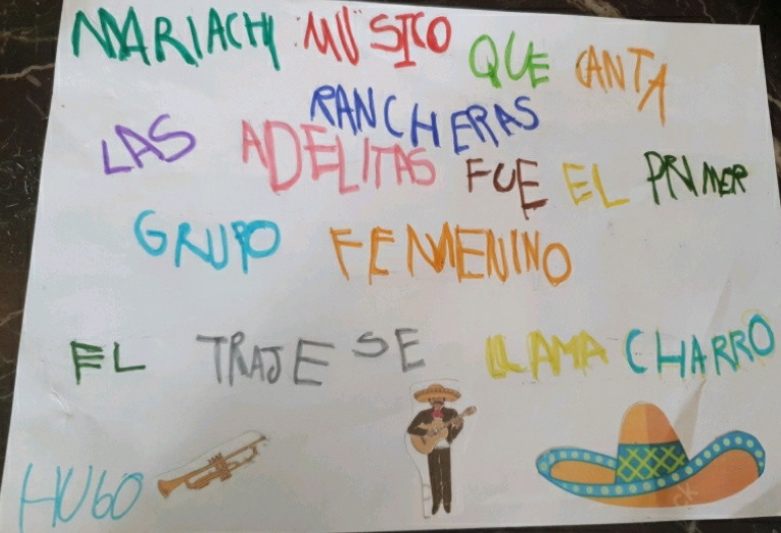 MARIACHI MÚSICO QUE CANTA
RANCHERAS
LAS ADELITAS FUE EL PRIMER
GRUPO FEMENINO
EL TRAJE SE LLAMA CHARRO
HUGO